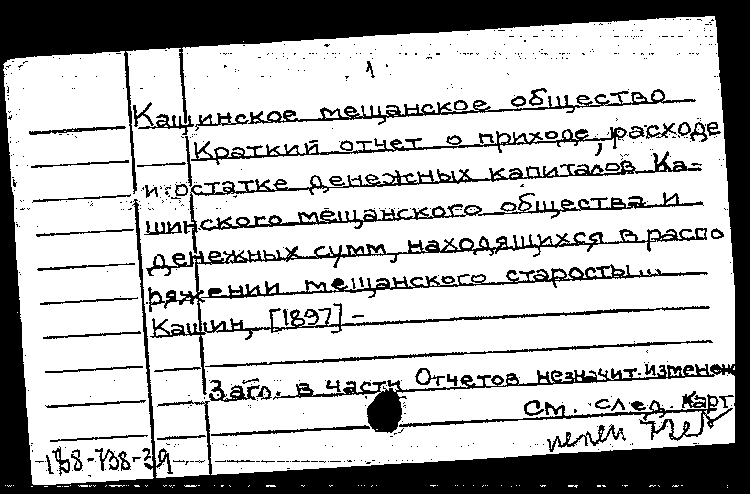 1
Кашинское мещанское общество
Краткий отчет о приходе, расходе
и остатке денежных капиталов Ка=
шинского мещанского общества и
денежных сумм, находящихся в распо
ряжении мещанского старосты...
Кашин, [1897] -
Загл. в части Отчетов незначит. изменено
См. след. карт.
138-738-39